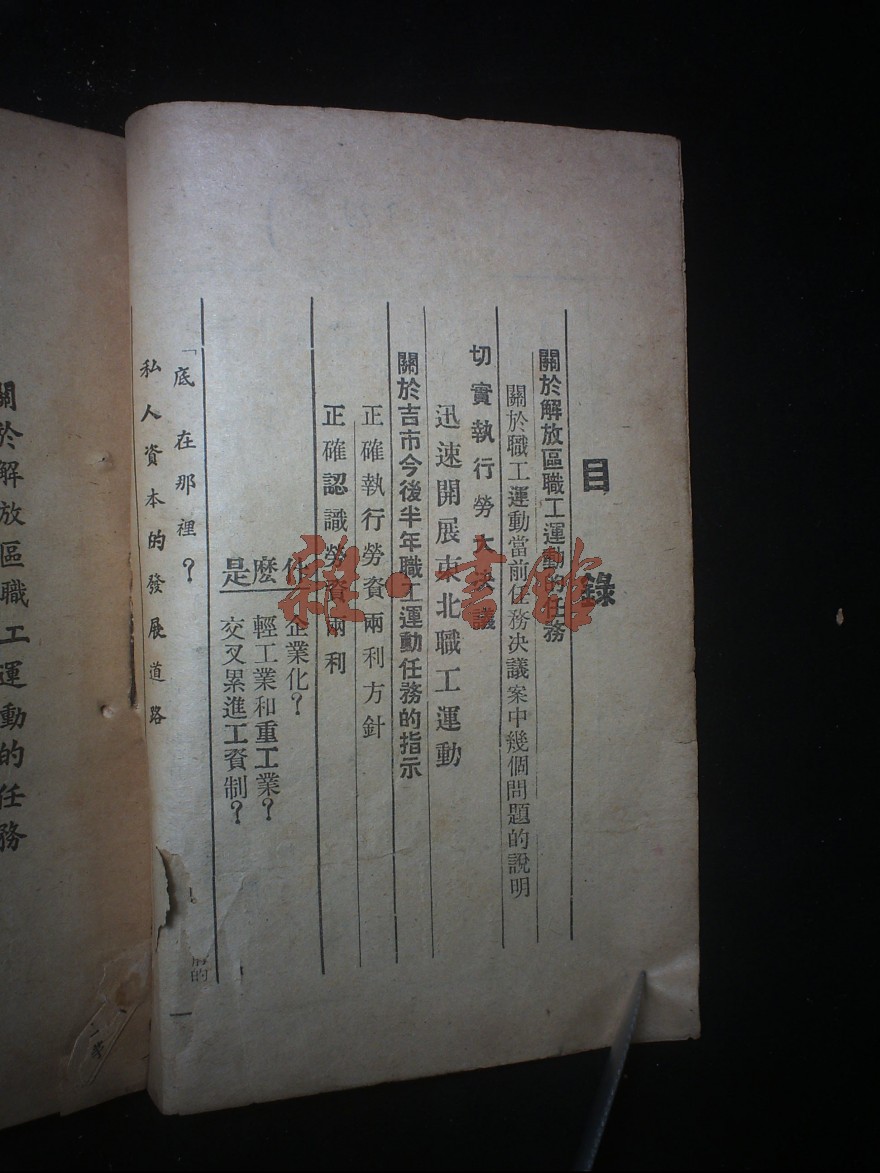 目錄
關於解放區職工運動的任務
關於職工運動當前任務決議案中幾個問題的說明
切實執行勞大決議
迅速開展東北職工運動
關於吉市今後半年職工運動任務的指示
正確執行勞資兩利方針
正確認識勞資兩利
什麽是
企業化？
輕工業和重工業？
交叉累進工資制？
「底在那裡？
私人資本的發展道路
的
關於解放區職工運動的任務
雜·書館